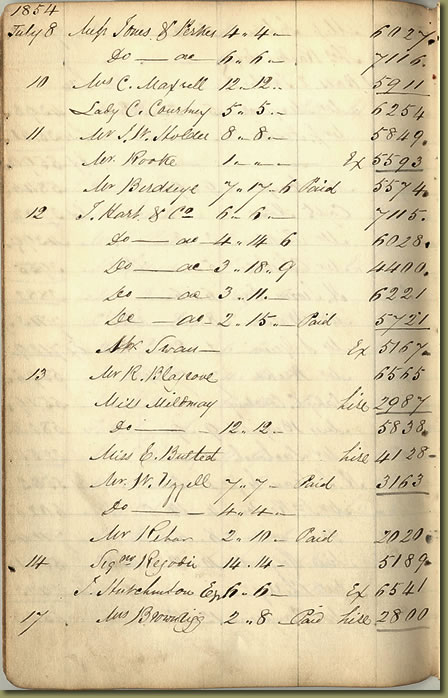 1854
July 8 Messrs Jones & Parker 4 .. 4 .. — 6027
Do — ao — 6 .. 6 .. — 7116
10 Mrs C. Maxwell 12 .. 12 .. 5911
Lady C. Courtney 5 .. 5 .. — 6254
11 Mr J. W. Holder 8 .. 8 .. — 5849
Mr. Rooke 1 .. — .. — Ex 5593
Mr Berdeye 7 .. 17 .. 6 Paid 5574
12 J. Hart & Co 6 .. 6 .. — 7115
Do — ao — 4 .. 14 6 6028
Do — ao 3 .. 18 .. 9 4400
Do — ao 3 .. 11 .. — 6221
Do — ao — 2 .. 15 .. — Paid 5721
Mr Swan — Ex 5167
13 Mr R. Blagrove 6565
Miss Mildmay hire 2987
Do — 12 .. 12 .. — 5838
Miss E. Busted hire 4128
Mr. W. Uzzell 7 .. 7 .. — Paid 3163
Do — 4 .. 4 .. —
Mr 2 .. 10 .. — Paid 2020
14 Sigr Regondi 14 .. 14 .. — 5189
J. Hutchinson Esq 6 .. 6 .. — Ex 6541
17 Mrs Browning 2 .. 8 .. — Paid hire 2800